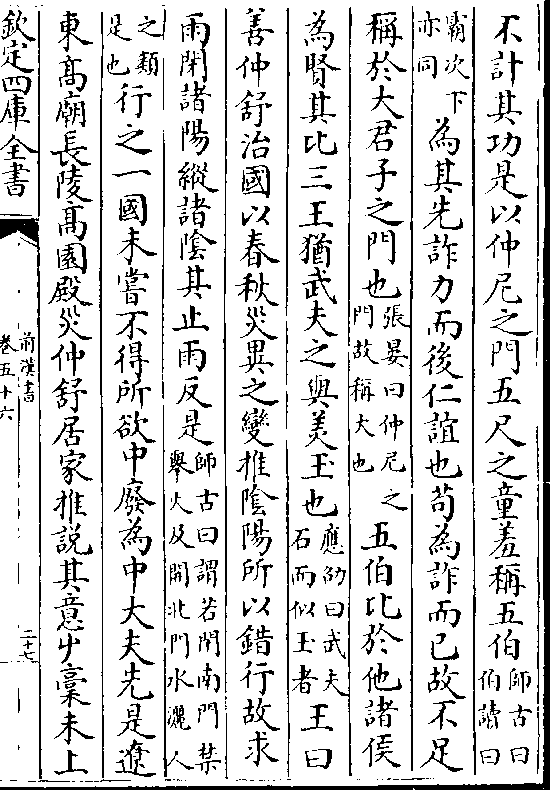 不計其功是以仲尼之門五尺之童羞稱五伯師古曰伯讀曰
霸次下亦同為其先詐力而後仁誼也苟為詐而已故不足
稱於大君子之門也張晏曰仲尼之門故稱大也五伯比於他諸侯
為賢其比三王猶武夫之與美玉也應劭曰武夫石而似玉者王曰
善仲舒治國以春秋災異之變推陰陽所以錯行故求
雨閉諸陽縱諸陰其止雨反是師古曰謂若閉南門禁舉火及開北門水灑人
之類是也行之一國未嘗不得所欲中廢為中大夫先是遼
東髙廟長陵髙園殿災仲舒居家推説其意屮稾未上
欽定四庫全書
前漢書
卷五十六
二十七